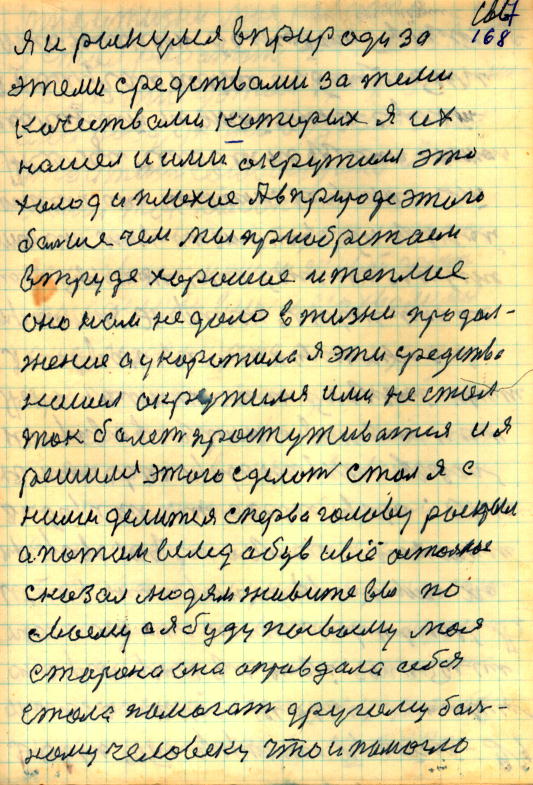 свв7
168
я и ринулся в природу за
этеми средствами за теми
качествами которых я их
нашел и ими окружился это
холод и плохие А в природе этого
больше чем мы приобретаем
в труде хорошие и теплые
оно нам не дало в жизни продол-
жение а укоротила я эти средства
нашел окружился ими не стал
так болеть простуживатся и я
решился этого сделать стал я с
ними делится сперва голову раскрыл
а потом вслед обув и всё остольное
сказал людям живите вы по
своему а я буду посвоему моя
сторона она оправдала себя
стала помогат другому бол-
ному человеку что и помогло